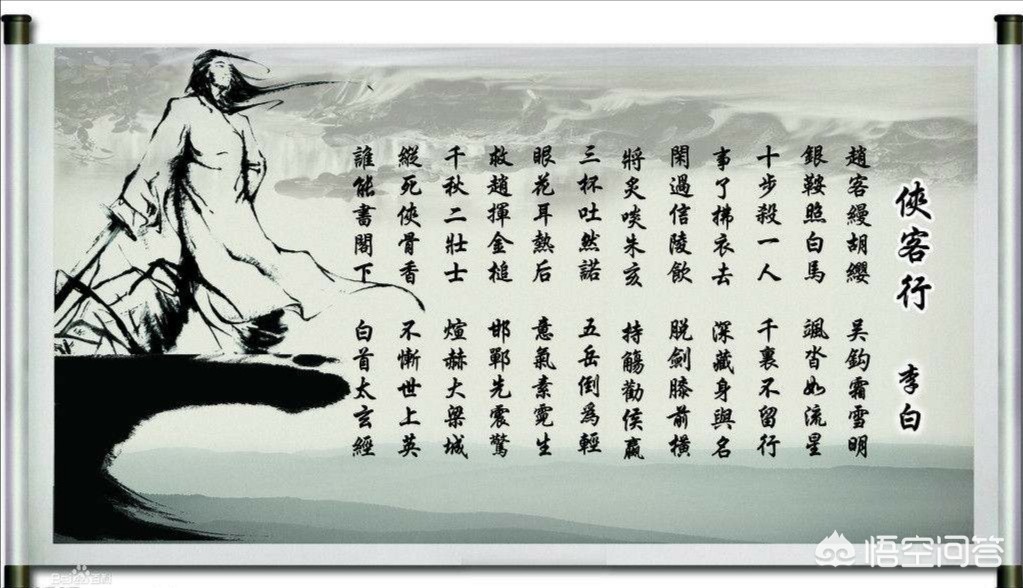 俠客行 李白
趙客縵胡纓 吴鈎霜雪明
銀鞍照白馬 颯沓如流星
十步殺一人 千裏不留行
事了拂衣去 深藏身與名
閑過信陵飲 脱劍膝前横
將炙啖朱亥 持觴勸侯嬴
三杯吐然諾 五岳倒爲輕
眼花耳熱后 意氣素霓生
救趙揮金槌 邯鄲先震驚
千秋二壯士 煊赫大梁城
縱死俠骨香 不慚世上英
誰能書閣下 白首太玄經
Baidu百科
悟空问答